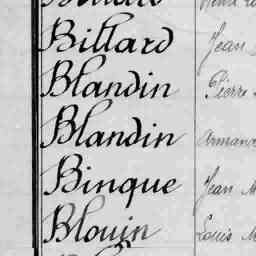 Billard Jean
Blandin Pierre
Blandin Armand
Binque Jean M
Blouin Louis M